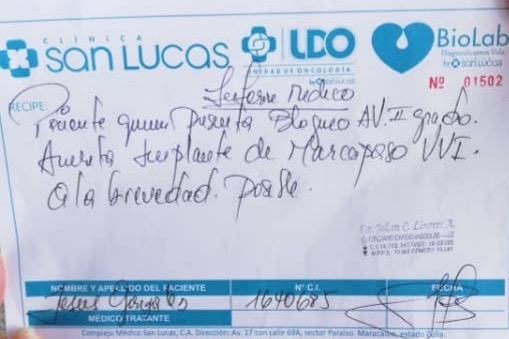 CLÍNICA
SAN LUCAS
LDO
UNIDAD DE ONCOLOGÍA
by San Lucas
BioLab
Diagnosticamos Vida
by san lucas
Nº 01502
Informe Medico
RECIPE:
Paciente quien presenta Bloqueo AV. II grado.
Amerita Implante de Marcapaso VVI.
a la brevedad. Posible.
NOMBRE Y APELLIDO DEL PACIENTE
N° C.I.
FECHA
Jesus Gonzalez
1640685
MÉDICO TRATANTE
Complejo Médico San Lucas, C.A. Dirección: Av. 17 con calle 69A, sector Paraíso. Maracaibo, estado Zulia.